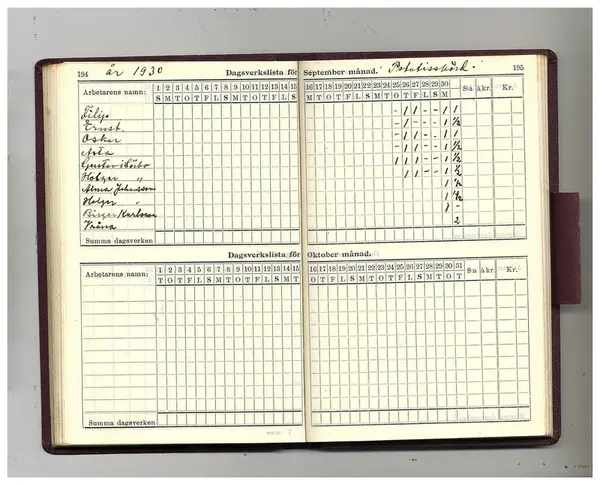 194 år 1930 Dagsverkslista för September månad. Potatisskörd. 195
Arbetarens namn: 1 2 3 4 5 6 7 8 9 10 11 12 13 14 15 16 17 18 19 20 21 22 23 24 25 26 27 28 29 30 S:a à kr. Kr.
S M T O T F L S M T O T F L S M T O T F L S M
Filip - 1 1 - - 1 1
Ernst. - 1 - - - 1 ½
Oskar - 1 1 - - 1 1
Asta - 1 1 - - 1 ½
Gustav i 1 1 1 - - 1 ½
Holger " 1 1 - - 1 ½
Alma Johansson 1 ½
Holger " 1 ½
Birger Karlsson 1 -
2
Summa dagsverken
Dagsverkslista för Oktober månad.
Arbetarens namn: 1 2 3 4 5 6 7 8 9 10 11 12 13 14 15 16 17 18 19 20 21 22 23 24 25 26 27 28 29 30 31 S:a à kr. Kr.
T O T F L S M T O T F L S M T O T F L S M T O T F L S M T O T
Summa dagsverken